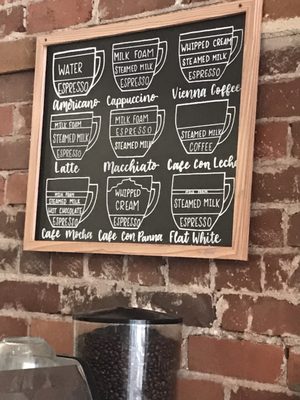 WATER
ESPRESSO
Americano
MILK FOAM
STEAMED MILK
ESPRESSO
Cappuccino
WHIPPED CREAM
STEAMED MILK
ESPRESSO
Vienna Coffee
MILK FOAM
STEAMED MILK
ESPRESSO
Latte
MILK FOAM
ESPRESSO
STEAMED MILK
Macchiato
STEAMED MILK
COFFEE
Cafe Con Leche
MILK FOAM
STEAMED MILK
HOT CHOCOLATE
ESPRESSO
Cafe Mocha
WHIPPED
CREAM
ESPRESSO
Cafe Con Panna
MILK FOAM
STEAMED MILK
ESPRESSO
Flat White